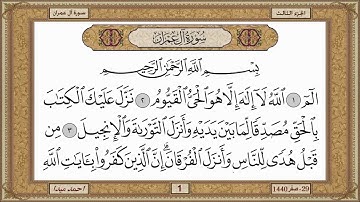 الجزء الثالث
سورة آل عمران
سُورَةُ آلِ عِمْرَانَ
بِسْمِ اللَّهِ الرَّحْمَٰنِ الرَّحِيمِ
الٓمٓ ١ ٱللَّهُ لَآ إِلَٰهَ إِلَّا هُوَ ٱلْحَىُّ ٱلْقَيُّومُ ٢ نَزَّلَ عَلَيْكَ ٱلْكِتَٰبَ
بِٱلْحَقِّ مُصَدِّقًا لِّمَا بَيْنَ يَدَيْهِ وَأَنزَلَ ٱلتَّوْرَىٰةَ وَٱلْإِنجِيلَ ٣ مِن
قَبْلُ هُدًى لِّلنَّاسِ وَأَنزَلَ ٱلْفُرْقَانَ ۗ إِنَّ ٱلَّذِينَ كَفَرُوا۟ بِـَٔايَٰتِ ٱللَّهِ
29- صفر 1440
1
احمد